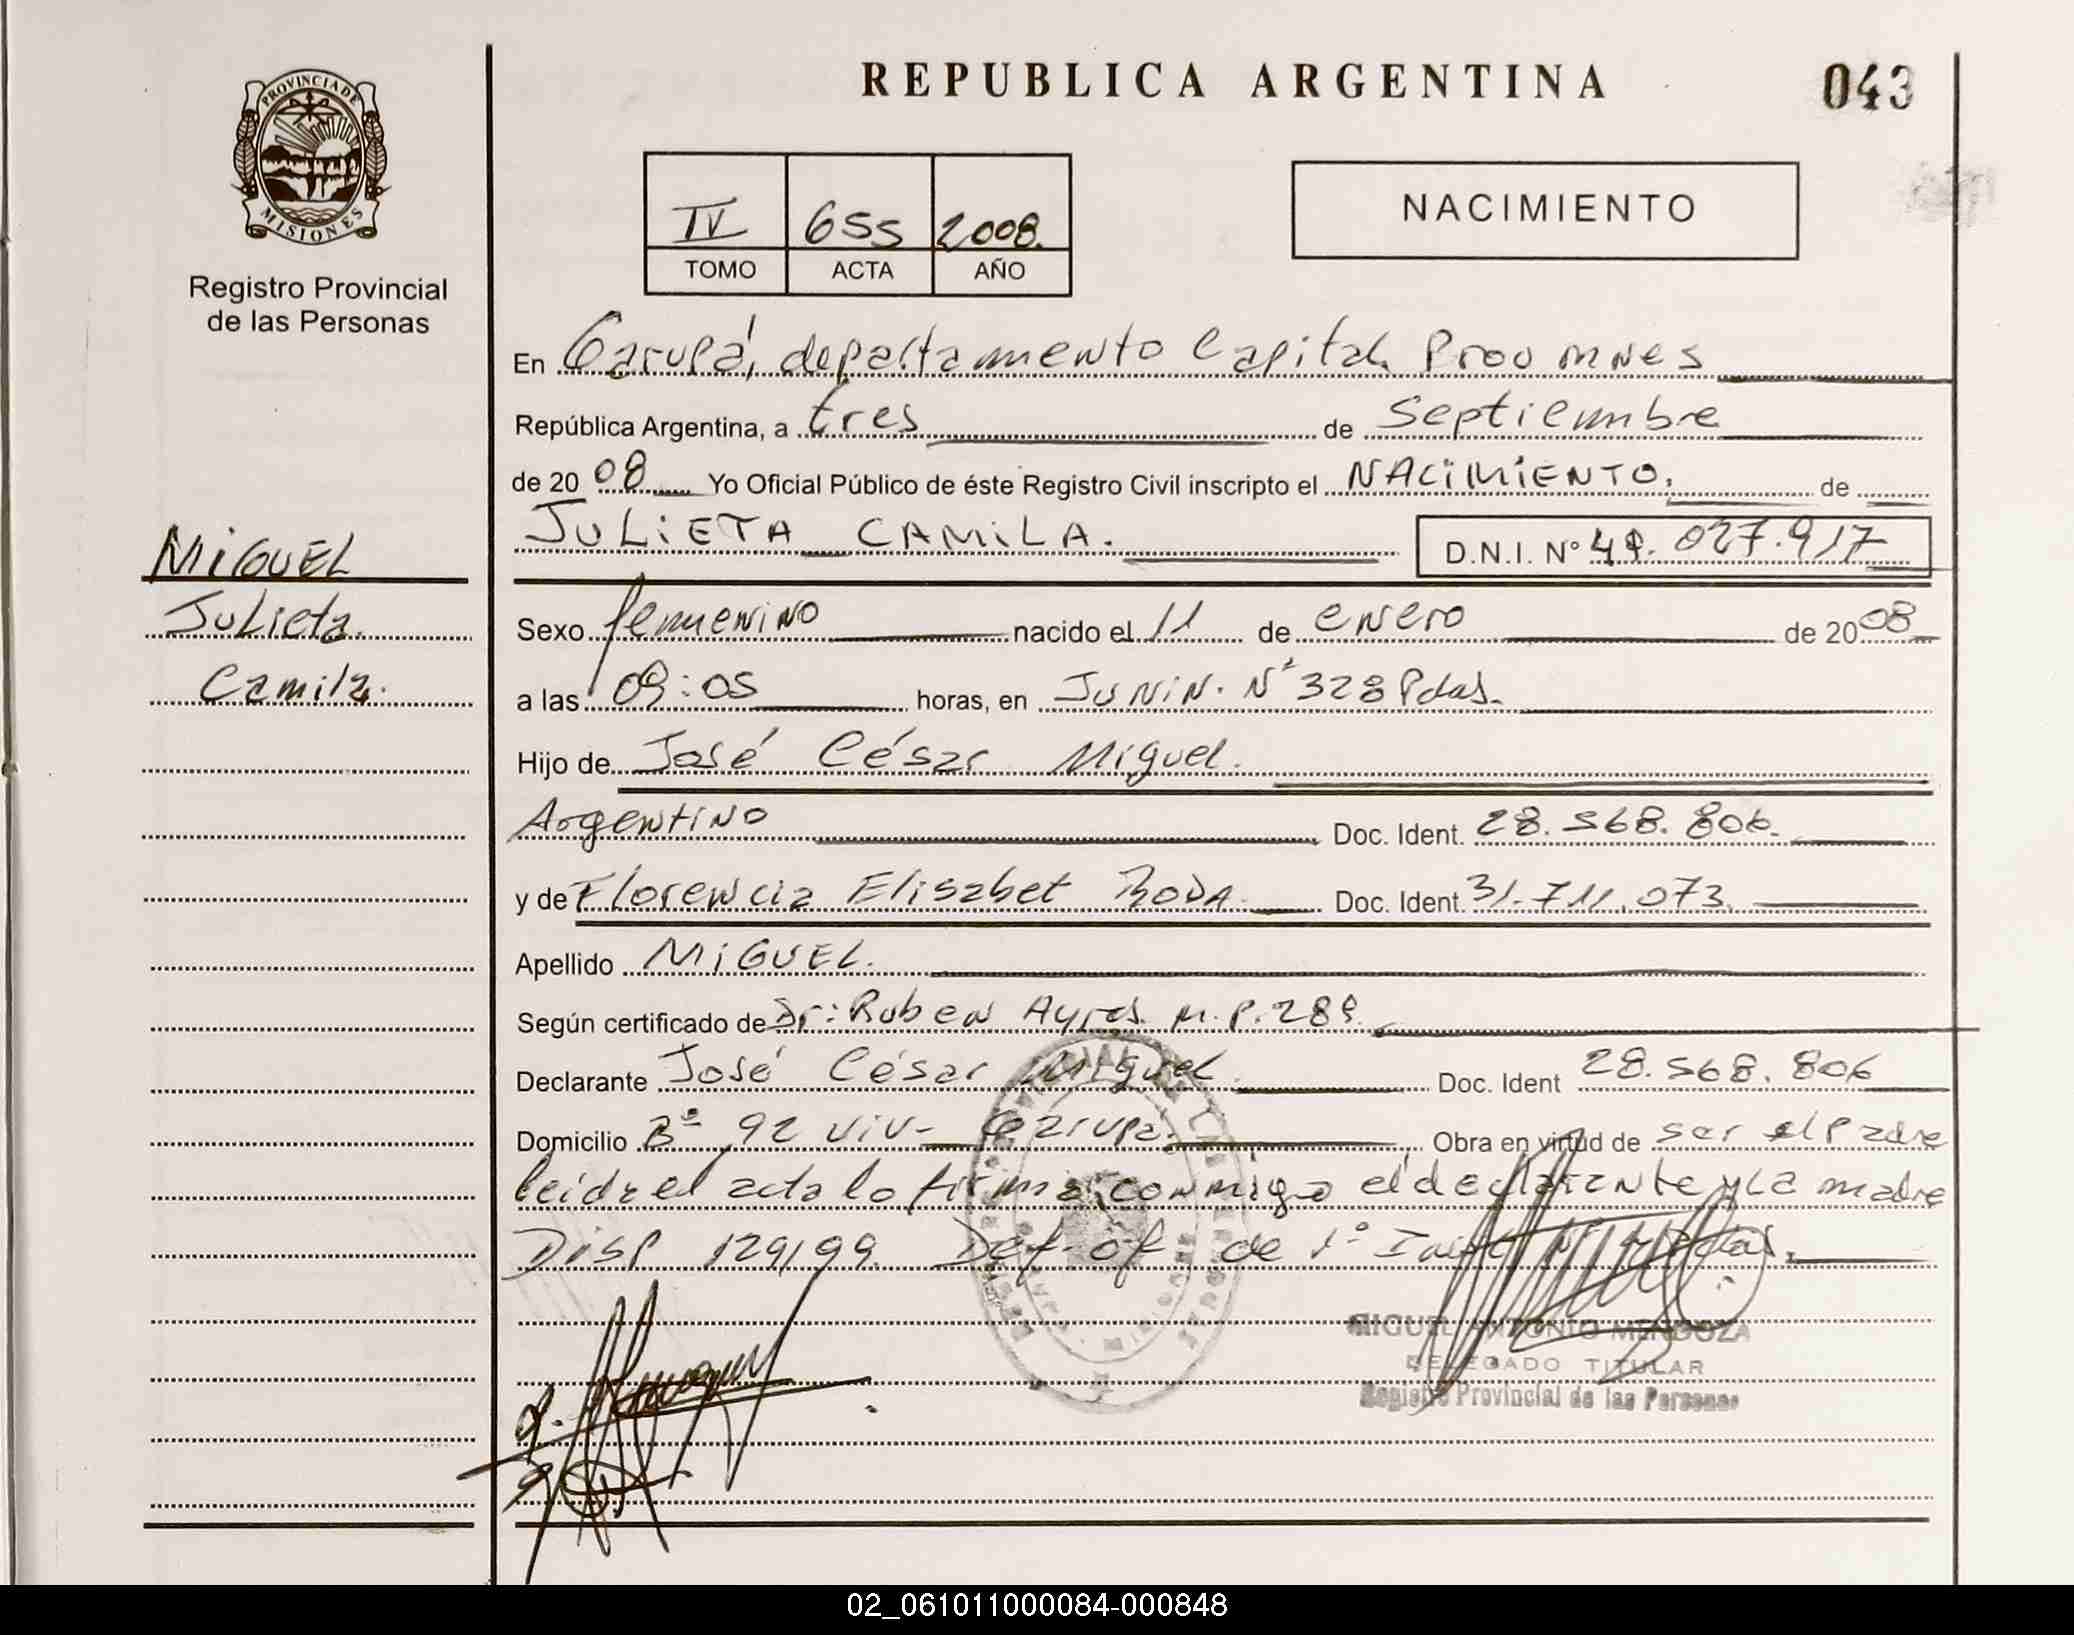 REPUBLICA ARGENTINA
043
PROVINCIA DE
MISIONES
Registro Provincial
de las Personas
IV 655 2008.
TOMO ACTA AÑO
NACIMIENTO
En Garupá, departamento Capital. Prov mnes
República Argentina, a tres de Septiembre
de 2008 Yo Oficial Público de éste Registro Civil inscripto el NACIMIENTO. de
JULIETA CAMILA. D.N.I. Nº 49.027.917
MIGUEL
Julieta
Camila.
Sexo femenino nacido el 11 de enero de 2008
a las 09:05 horas, en JUNIN. Nº 328 Pdas.
Hijo de José César Miguel.
Argentino Doc. Ident. 28.568.806.
y de Florencia Elisabet RODA. Doc. Ident. 31.711.073.
Apellido MIGUEL.
Según certificado de Dr: Ruben Ayres. M.P. 289.
Declarante José César Miguel Doc. Ident 28.568.806
Domicilio Bº 92 viv- Garupá. Obra en virtud de ser el padre
leida el acta lo firma conmigo el declarante y la madre
Disp 129/99. Def-of de 1º
MIGUEL ANTONIO MENDOZA
DELEGADO TITULAR
Registro Provincial de las Personas
02_061011000084-000848